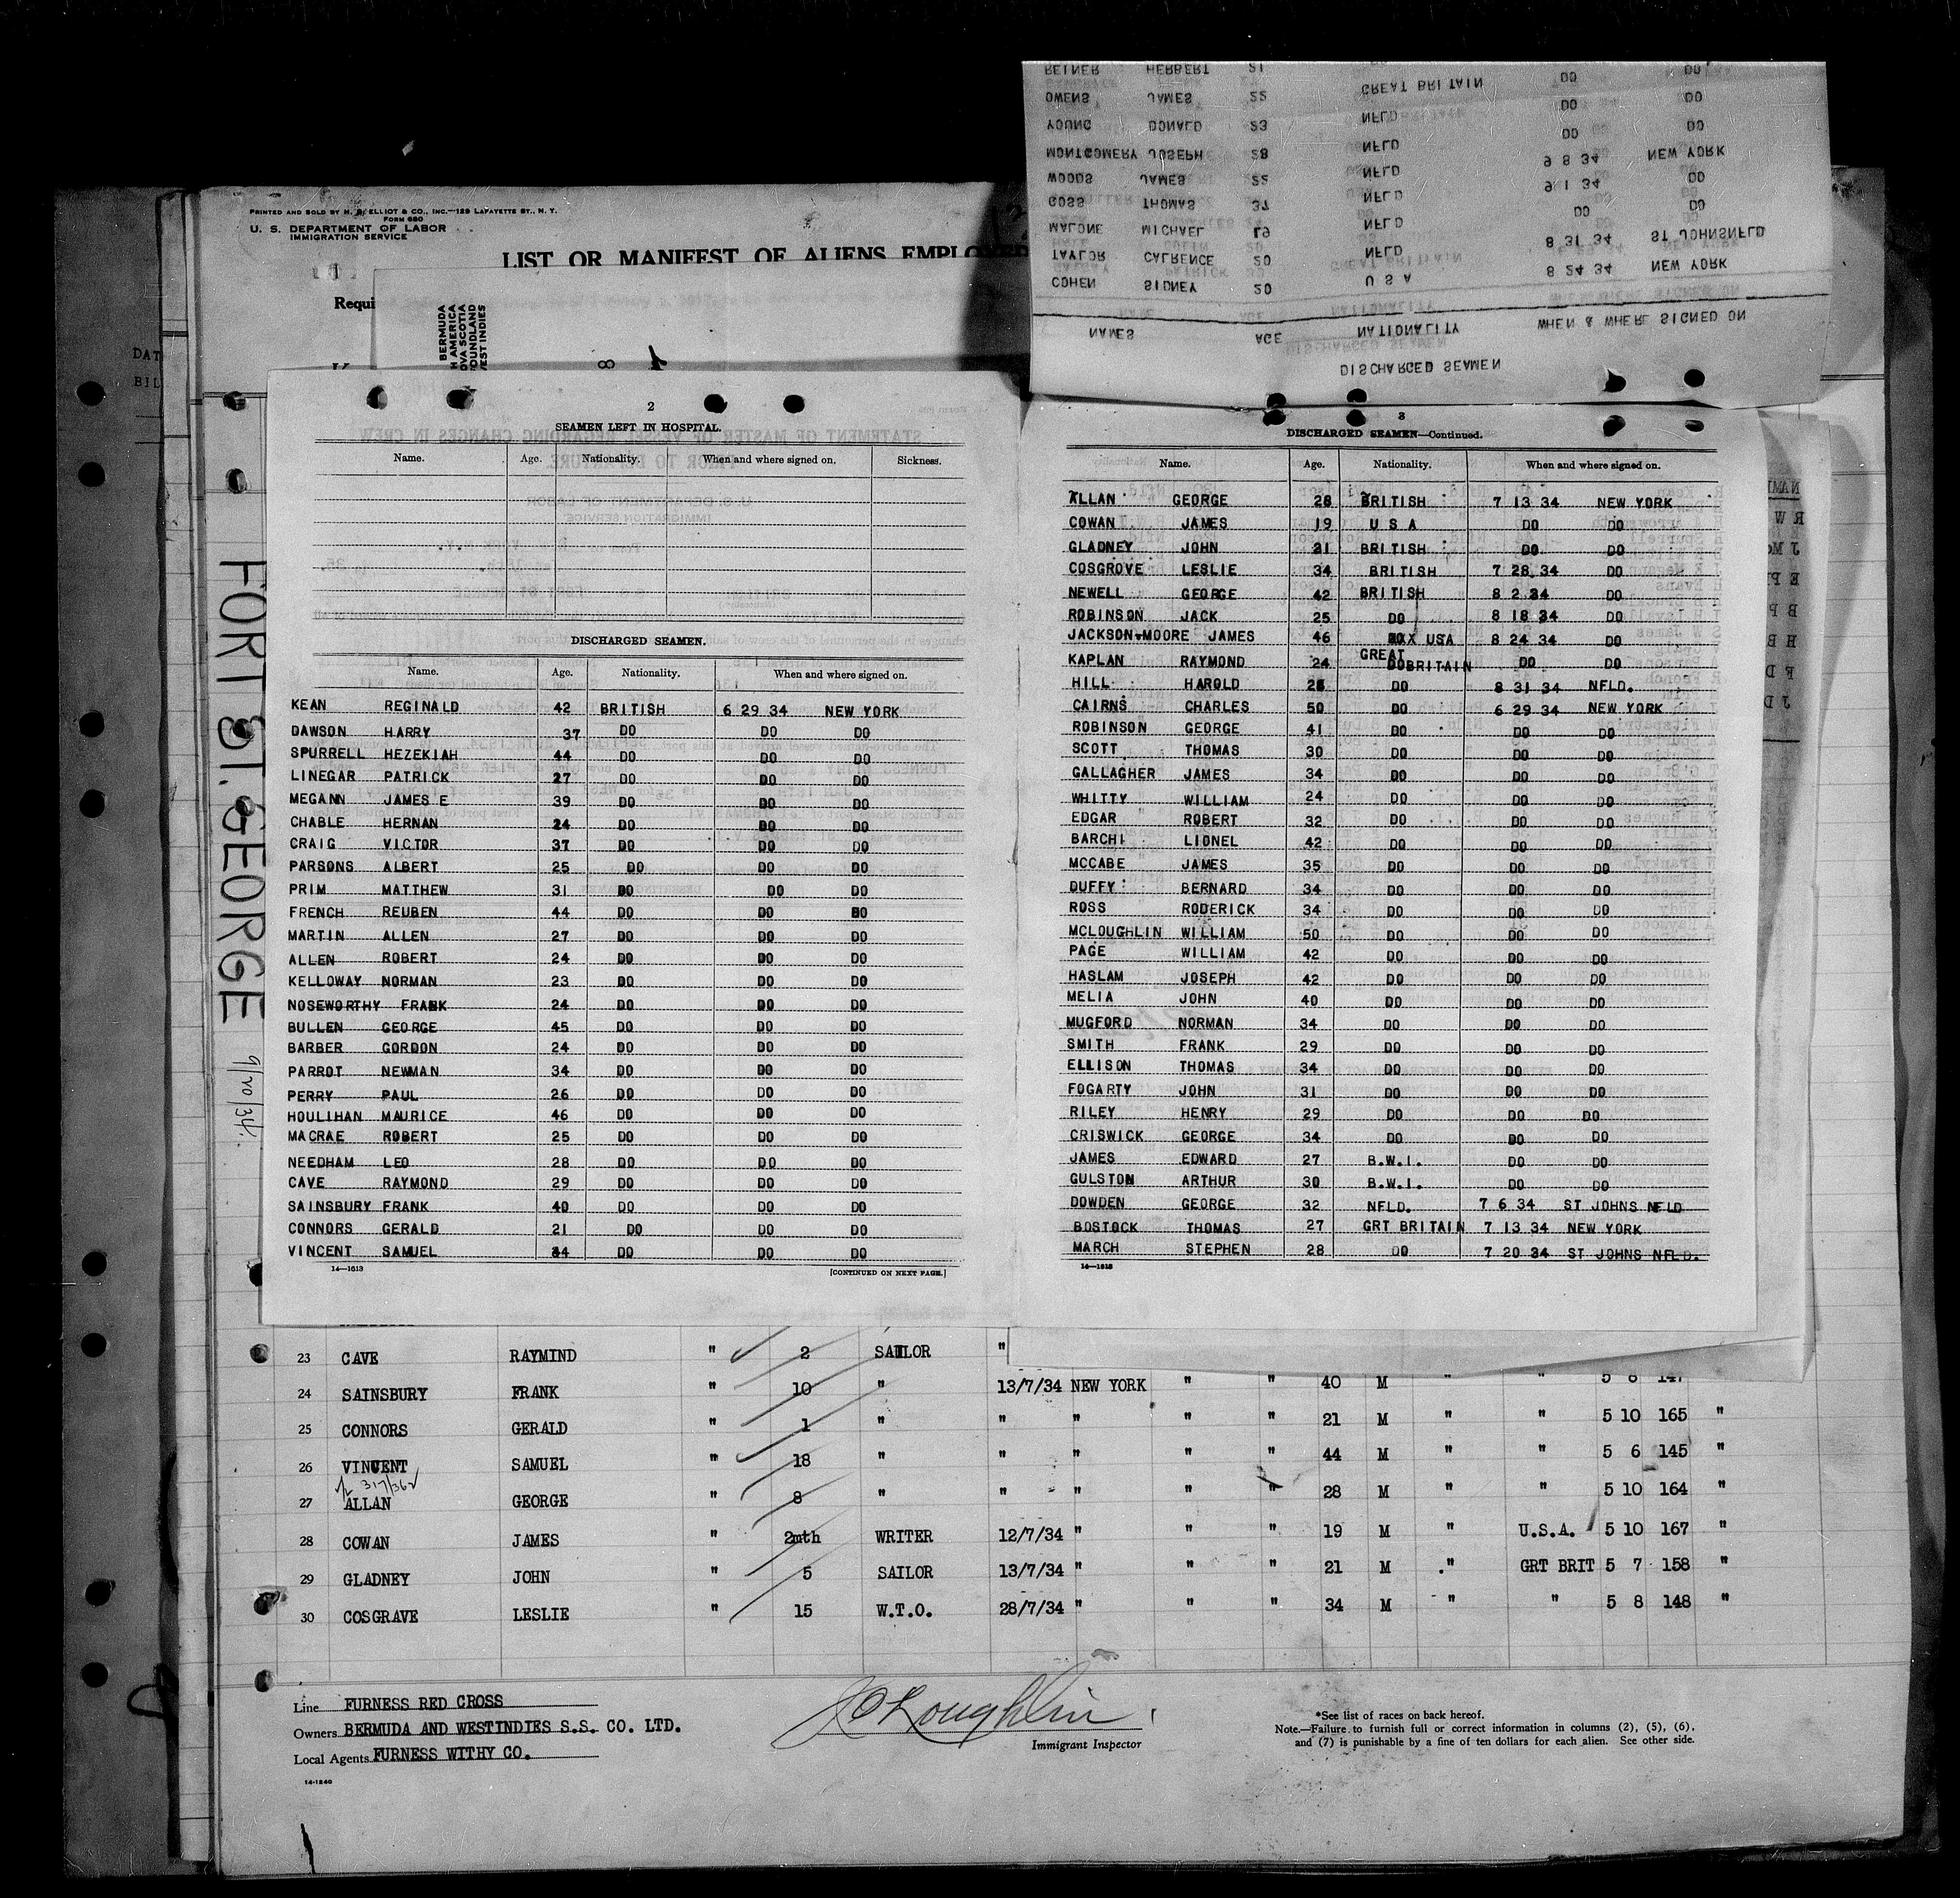 PRINTED AND SOLD BY H. B. ELLIOT & CO., INC.—129 LAFAYETTE ST., N. Y.
FORM 680
U. S. DEPARTMENT OF LABOR
IMMIGRATION SERVICE
LIST OR MANIFEST OF ALIENS EMPLOYED
Requi
BERMUDA
H AMERICA
OVA SCOTIA
FOUNDLAND
VEST INDIES
DAT
BIL
FORT ST. GEORGE
9/20/34.
DISCHARGED SEAMEN
NAMES AGE NATIONALITY WHEN & WHERE SIGNED ON
COHEN SIDNEY 20 U S A 8 24 34 NEW YORK
TAYLOR CALRENCE 20 NFLD 8 31 34 ST JOHNSNFLD
MALONE MICHAEL 19 NFLD DO DO
GOSS THOMAS 37 NFLD 9 1 34 DO
WOODS JAMES 22 NFLD 9 8 34 NEW YORK
MONTGOMERY JOSEPH 28 NFLD DO DO
YOUNG DONALD 23 NFLD DO DO
OWENS JAMES 22 GREAT BRITAIN DO DO
REINER HERBERT 21
2
SEAMEN LEFT IN HOSPITAL.
Name. Age. Nationality. When and where signed on. Sickness.
DISCHARGED SEAMEN.
Name. Age. Nationality. When and where signed on.
KEAN REGINALD 42 BRITISH 6 29 34 NEW YORK
DAWSON HARRY 37 DO DO DO
SPURRELL HEZEKIAH 44 DO DO DO
LINEGAR PATRICK 27 DO DO DO
MEGANN JAMES E 39 DO DO DO
CHABLE HERNAN 24 DO DO DO
CRAIG VICTOR 37 DO DO DO
PARSONS ALBERT 25 DO DO DO
PRIM MATTHEW 31 DO DO DO
FRENCH REUBEN 44 DO DO DO
MARTIN ALLEN 27 DO DO DO
ALLEN ROBERT 24 DO DO DO
KELLOWAY NORMAN 23 DO DO DO
NOSEWORTHY FRANK 24 DO DO DO
BULLEN GEORGE 45 DO DO DO
BARBER GORDON 24 DO DO DO
PARROT NEWMAN 34 DO DO DO
PERRY PAUL 26 DO DO DO
HOULIHAN MAURICE 46 DO DO DO
MACRAE ROBERT 25 DO DO DO
NEEDHAM LEO 28 DO DO DO
CAVE RAYMOND 29 DO DO DO
SAINSBURY FRANK 40 DO DO DO
CONNORS GERALD 21 DO DO DO
VINCENT SAMUEL 44 DO DO DO
14—1613 [CONTINUED ON NEXT PAGE.]
3
DISCHARGED SEAMEN—Continued.
Name. Age. Nationality. When and where signed on.
ALLAN GEORGE 28 BRITISH 7 13 34 NEW YORK
COWAN JAMES 19 U S A DO DO
GLADNEY JOHN 21 BRITISH DO DO
COSGROVE LESLIE 34 BRITISH 7 28 34 DO
NEWELL GEORGE 42 BRITISH 8 2 34 DO
ROBINSON JACK 25 DO 8 18 34 DO
JACKSON-MOORE JAMES 46 USA 8 24 34 DO
KAPLAN RAYMOND 24 GREAT BRITAIN DO DO
HILL HAROLD DO 8 31 34 NFLD.
CAIRNS CHARLES 50 DO 6 29 34 NEW YORK
ROBINSON GEORGE 41 DO DO DO
SCOTT THOMAS 30 DO DO DO
GALLAGHER JAMES 34 DO DO DO
WHITTY WILLIAM 24 DO DO DO
EDGAR ROBERT 32 DO DO DO
BARCHI LIONEL 42 DO DO DO
MCCABE JAMES 35 DO DO DO
DUFFY BERNARD 34 DO DO DO
ROSS RODERICK 34 DO DO DO
MCLOUGHLIN WILLIAM 50 DO DO DO
PAGE WILLIAM 42 DO DO DO
HASLAM JOSEPH 42 DO DO DO
MELIA JOHN 40 DO DO DO
MUGFORD NORMAN 34 DO DO DO
SMITH FRANK 29 DO DO DO
ELLISON THOMAS 34 DO DO DO
FOGARTY JOHN 31 DO DO DO
RILEY HENRY 29 DO DO DO
CRISWICK GEORGE 34 DO DO DO
JAMES EDWARD 27 B.W.I. DO DO
GULSTON ARTHUR 30 B.W.I. DO DO
DOWDEN GEORGE 32 NFLD. 7 6 34 ST JOHNS NFLD
BOSTOCK THOMAS 27 GRT BRITAIN 7 13 34 NEW YORK
MARCH STEPHEN 28 DO 7 20 34 ST JOHNS NFLD.
14—1613
23 CAVE RAYMIND " 2 SAILOR "
24 SAINSBURY FRANK " 10 " 13/7/34 NEW YORK " " 40 M " " 5 8 147
25 CONNORS GERALD " 1 " " " " " 21 M " " 5 10 165 "
26 VINCENT SAMUEL " 18 " " " " " 44 M " " 5 6 145 "
27 ALLAN GEORGE " 8 " " " " " 28 M " " 5 10 164 "
28 COWAN JAMES " 2mth WRITER 12/7/34 " " " 19 M " U.S.A. 5 10 167 "
29 GLADNEY JOHN " 5 SAILOR 13/7/34 " " " 21 M " GRT BRIT 5 7 158 "
30 COSGRAVE LESLIE " 15 W.T.O. 28/7/34 " " " 34 M " " 5 8 148 "
Line FURNESS RED CROSS
Owners BERMUDA AND WESTINDIES S.S. CO. LTD.
Local Agents FURNESS WITHY CO.
14-1240
JCLoughlin
Immigrant Inspector
*See list of races on back hereof.
Note.—Failure to furnish full or correct information in columns (2), (5), (6),
and (7) is punishable by a fine of ten dollars for each alien. See other side.